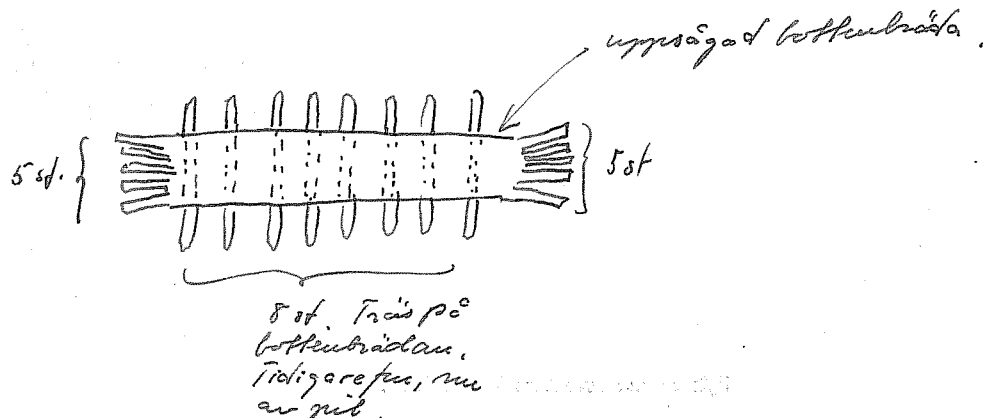 uppsågad bottenbräda.
5 st.
5 st
8 st. Träs på
bottenbrädan.
Tidigare fur, nu
av pil.